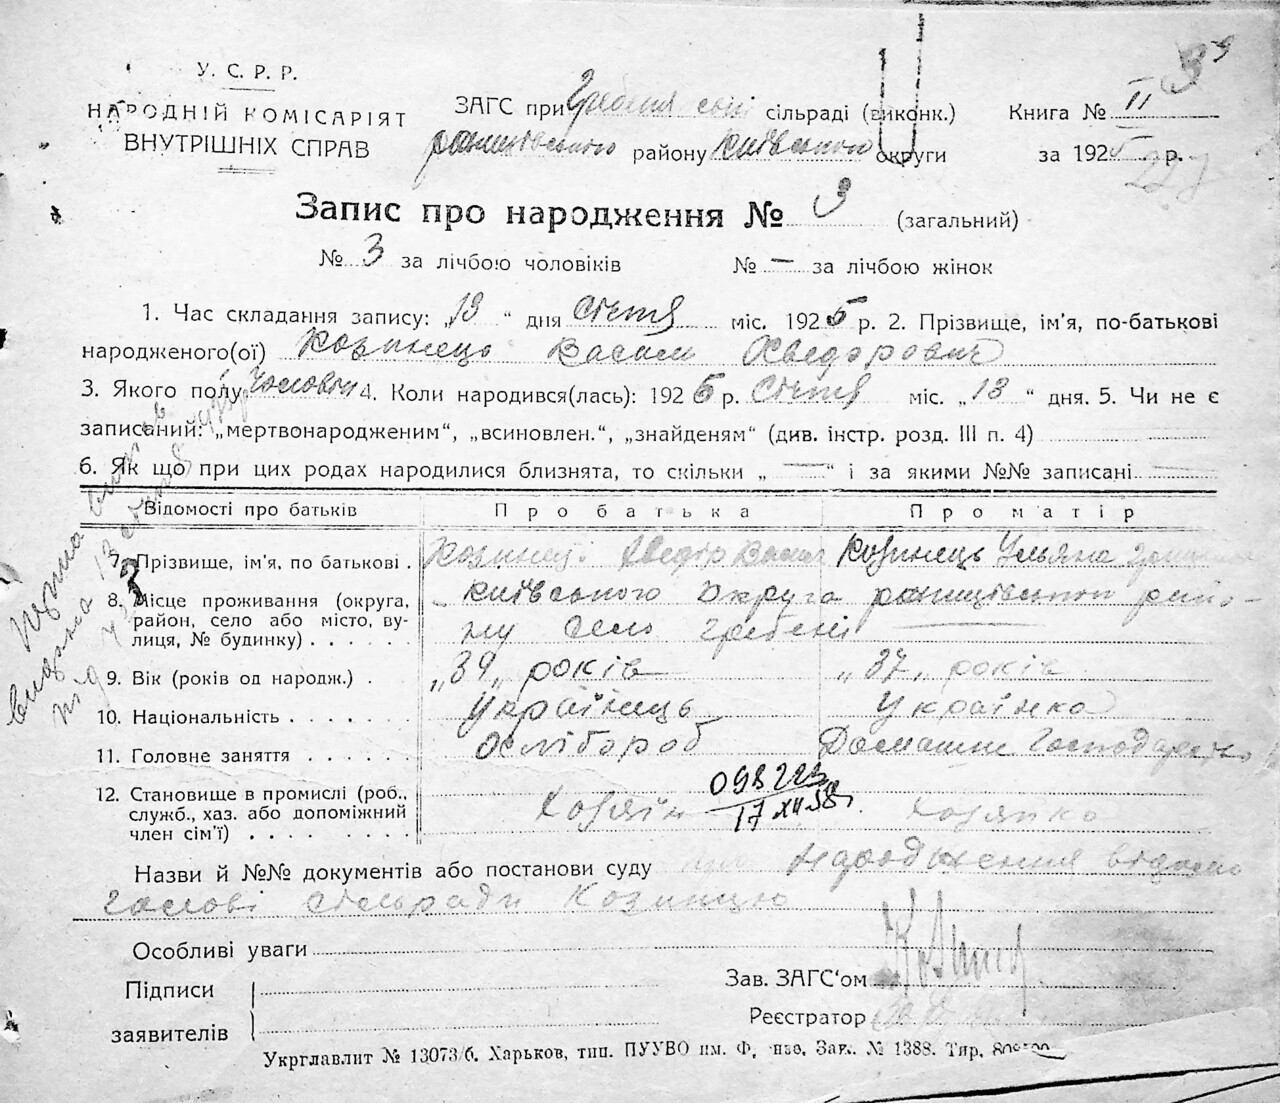 У. С. Р. Р.
НАРОДНІЙ КОМІСАРІЯТ
ВНУТРІШНІХ СПРАВ
ЗАГС при Гребеня сокі сільраді (виконк.)
району Київського округи
Книга № II
за 1925 р.
Запис про народження № 3 (загальний)
№ 3 за лічбою чоловіків № — за лічбою жінок
1. Час складання запису: „13 “ дня Січня міс. 1926 р. 2. Прізвище, ім'я, по-батькові
народженого(ої) Козинець Василь Хведорович
3. Якого полу Чоловічи 4. Коли народився(лась): 1926 р. Січня міс. „13 “ дня. 5. Чи не є
записаний: „мертвонародженим“, „всиновлен.“, „знайденям“ (див. інстр. розд. III п. 4)
6. Як що при цих родах народилися близнята, то скільки „ — “ і за якими №№ записані —
Відомості про батьків Про батька Про матір
7. Прізвище, ім'я, по батькові . Козинец Хведір Васил Козинець Ульяна
8. Місце проживання (округа, Київського Округа район-
район, село або місто, ву- ну село Гребені
лиця, № будинку) . . . . .
9. Вік (років од народж.) . „39„ років „37„ років
10. Національність . . . . . . . Українець Українка
11. Головне заняття . . . . . . Хлібороб Домашнє Господарст
12. Становище в промислі (роб., 17 XII 58
служб., хаз. або допоміжний Хозяін Хозяйко
член сім'ї) . . . . . . . . .
Назви й №№ документів або постанови суду про народження відомо
голові сільради Козинцю
Особливі уваги
Підписи
заявителів
Зав. ЗАГС‘ом
Реєстратор
Укрглавлит № 13073/б. Харьков, тип. ПУУВО им. Ф, нзе. Зак. № 1388. Тир.